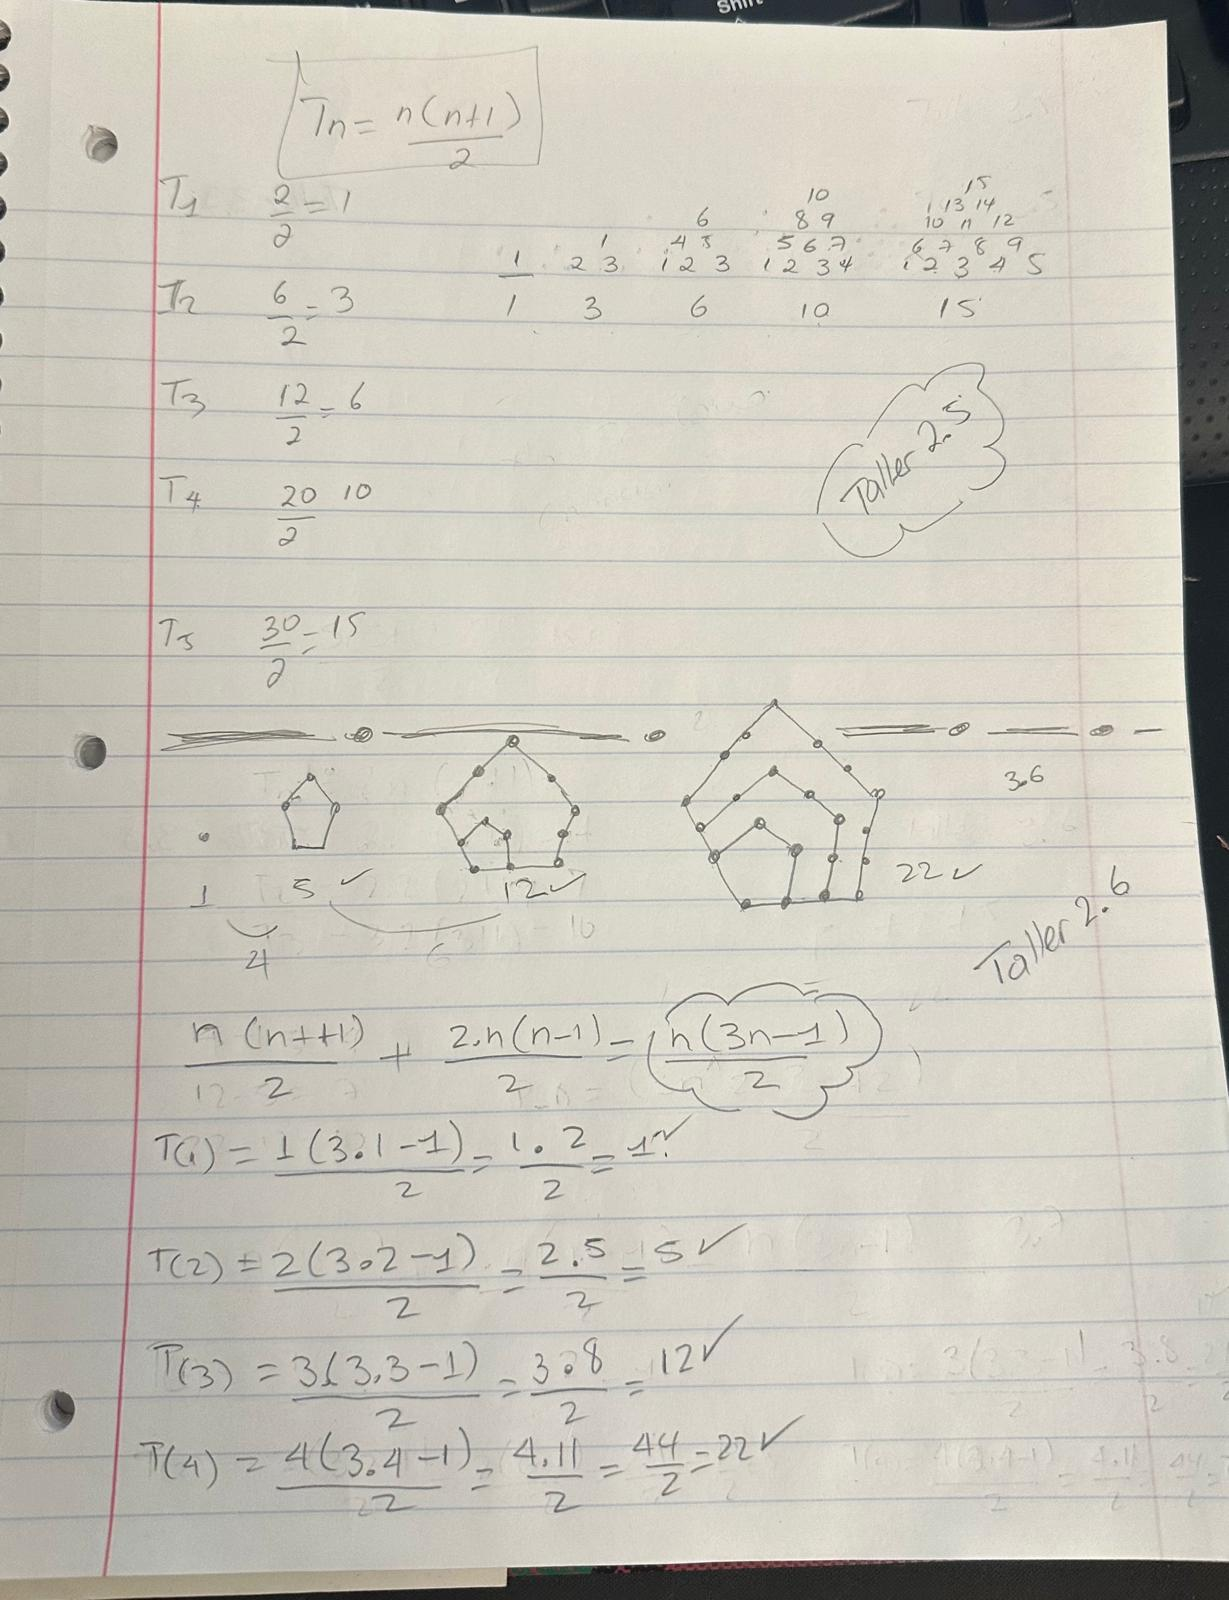 Shift
Tn = n(n+1)/2
T1 2/2 = 1
T2 6/2 = 3
T3 12/2 = 6
T4 20/2 10
T5 30/2 = 15
1
1
2 3
6
4 5
1 2 3
10
8 9
5 6 7
1 2 3 4
15
13 14
10 11 12
6 7 8 9
1 2 3 4 5
1 3 6 10 15
Taller 2.5
3.6
1 5 ✓ 12 ✓ 22 ✓
4 6
Taller 2.6
n(n++1)/2 + 2.n(n-1)/2 = n(3n-1)/2
T(1) = 1(3.1-1)/2 = 1.2/2 = 1 ✓
T(2) = 2(3.2-1)/2 = 2.5/2 = 5 ✓
T(3) = 3(3.3-1)/2 = 3.8/2 = 12 ✓
T(4) = 4(3.4-1)/2 = 4.11/2 = 44/2 = 22 ✓